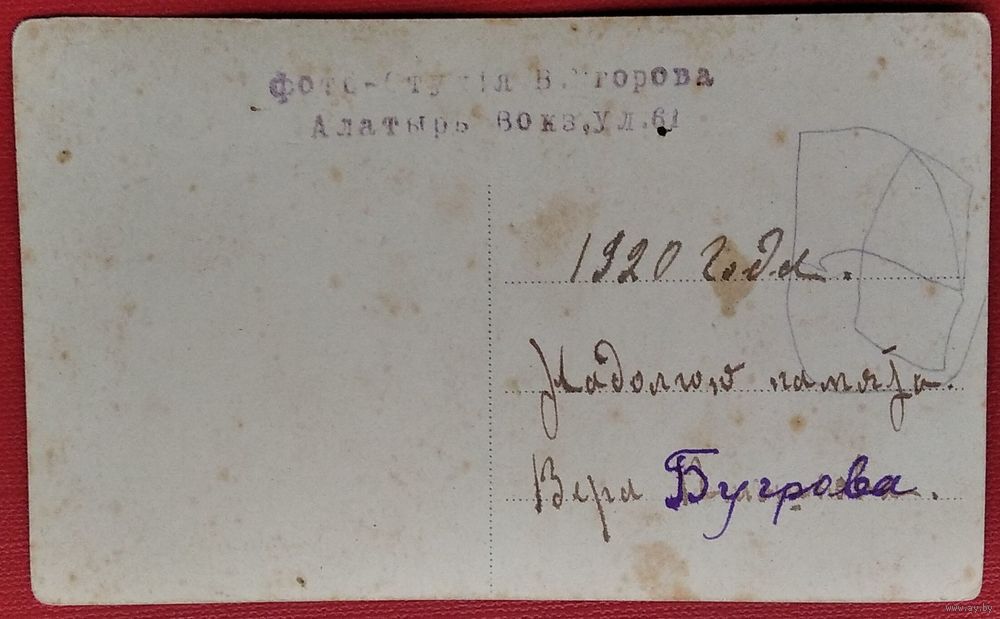 фото-студия В. Егорова
Алатырь Вокз.ул.61
1920 года.
Надолгою памяты.
Вера Бугрова.
www.ay.by